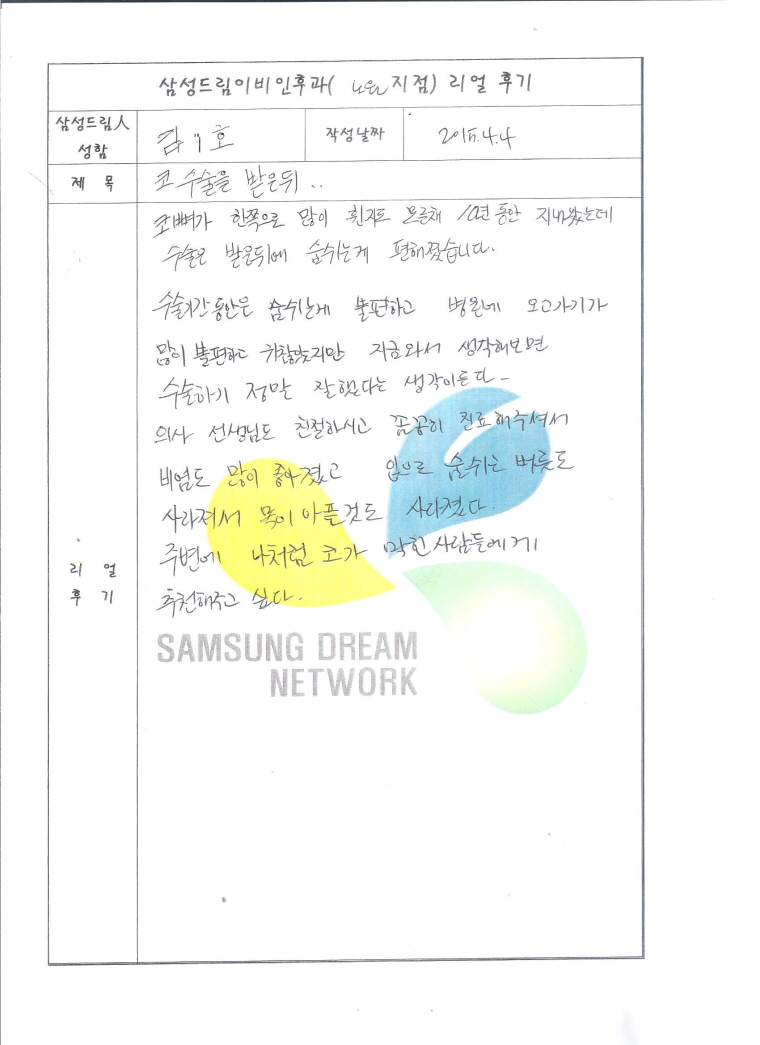 삼성드림이비인후과( 노원 지점) 리얼 후기
삼성드림人 성함
김 호
작성날짜
2015.4.4
제 목
코 수술을 받은뒤 ..
리 얼 후 기
코뼈가 한쪽으로 많이 휜지도 모른채 10년 동안 지내왔는데
수술은 받은뒤에 숨쉬는게 편해졌습니다.
수술기간 동안은 숨쉬는게 불편하고 병원에 오고가기가
많이 불편하고 귀찮았지만 지금와서 생각해보면
수술하기 정말 잘했다는 생각이든다-
의사 선생님도 친절하시고 꼼꼼히 진료해주셔서
비염도 많이 좋아졌고 입으로 숨쉬는 버릇도
사라져서 목이 아플것도 사라졌다.
주변에 나처럼 코가 막힌 사람들에게
추천해주고 싶다.
SAMSUNG DREAM
NETWORK